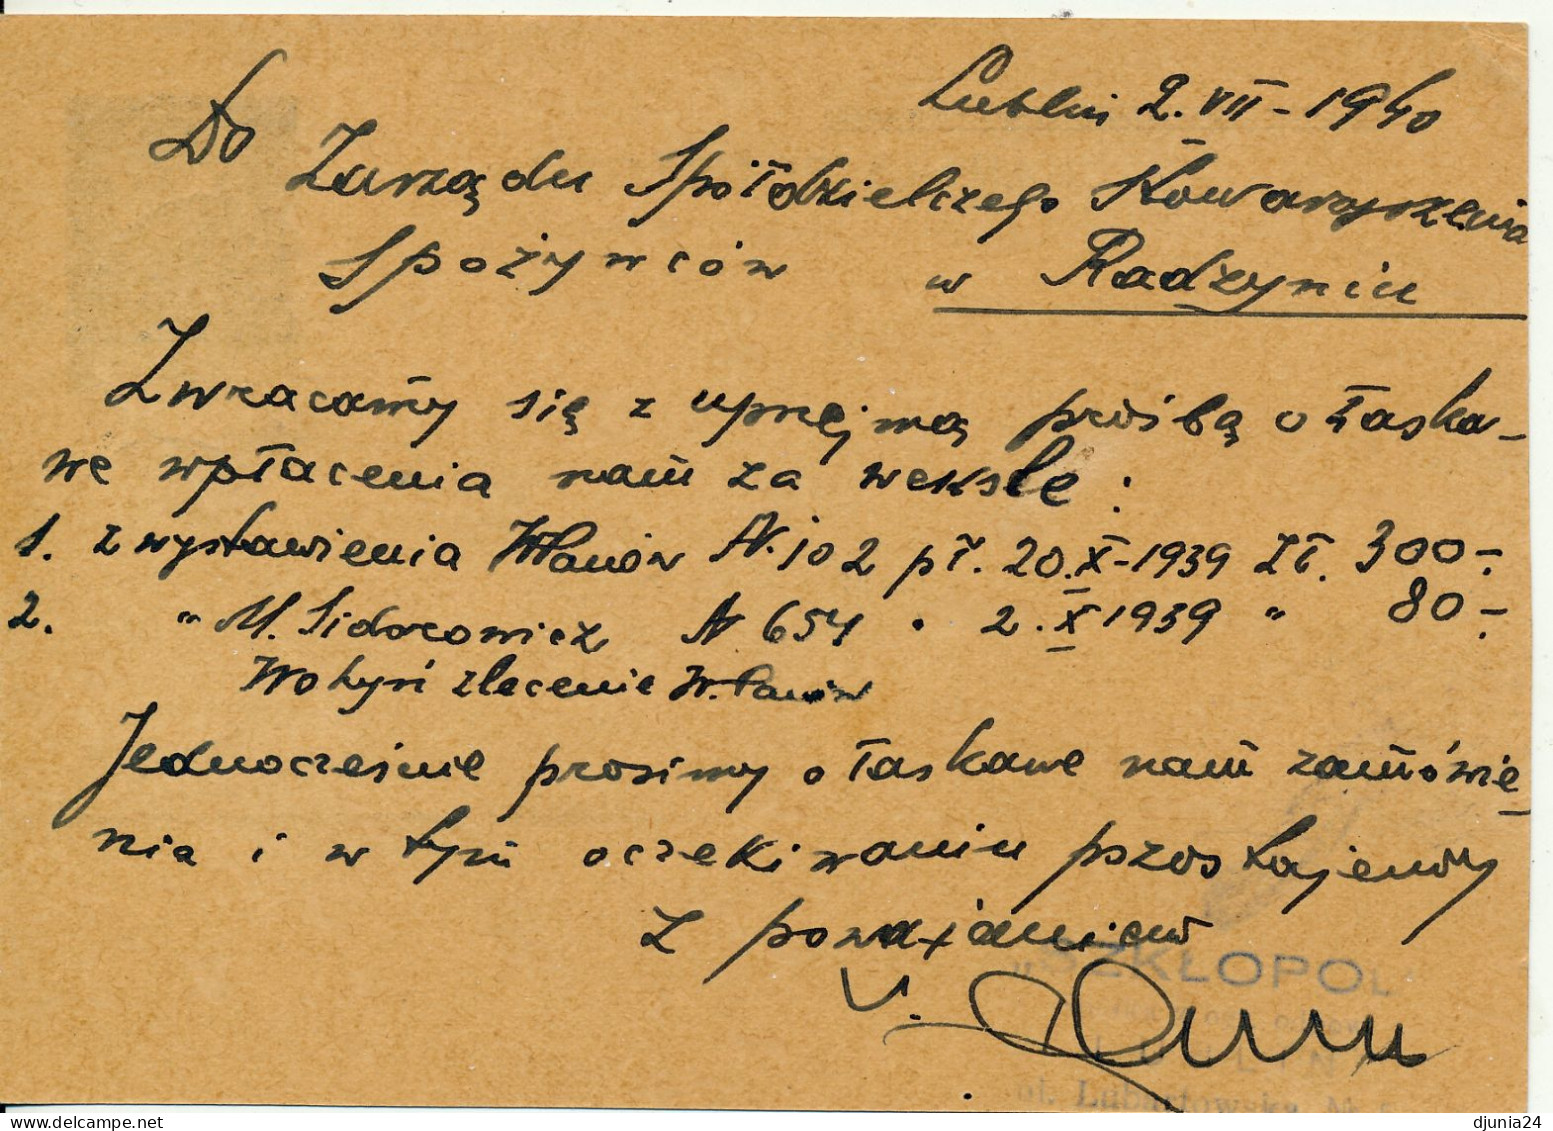 Lublin 2.VII-1940
Do
Zarządu Spółdzielczego Stowarzyszenia
Spożywców w Radzyniu
Zwracamy się z uprzejmą prośbą o łaska-
we wpłacenia nam za weksle:
1. z wystawienia Nr. 102 pł. 20.X-1939 Zł. 300-
2. " M. Sidorowicz N 654 " 2.X 1939 " 80-
Wohyń zlecenie
Jednocześnie prosimy o łaskawe nam zamówie-
nia i w tym oczekiwaniu pozostajemy
Z poważaniem
"SZKŁOPOL
LUBLIN
ul. Lubartowska Nr 5
djunia24